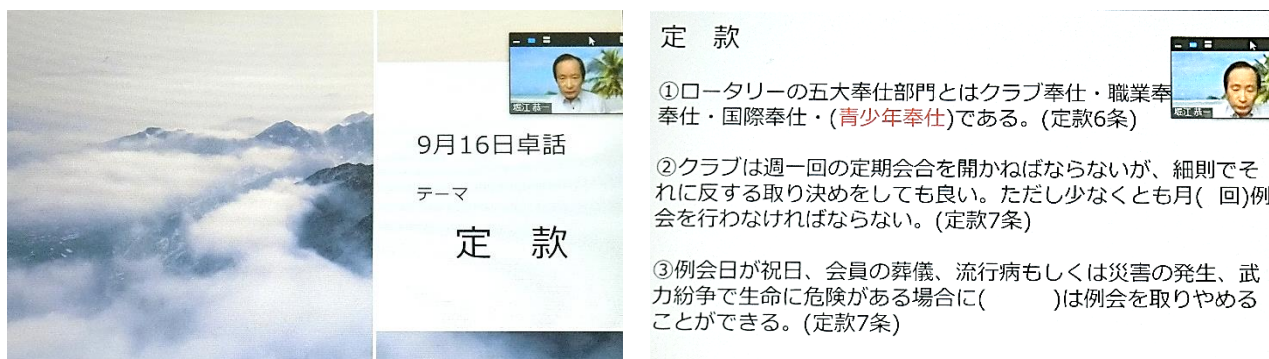 堀江 恭一
9月16日卓話
テーマ
定 款
定 款
堀江 恭一
①ロータリーの五大奉仕部門とはクラブ奉仕・職業奉
奉仕・国際奉仕・(青少年奉仕)である。(定款6条)
②クラブは週一回の定期会合を開かねばならないが、細則でそ
れに反する取り決めをしても良い。ただし少なくとも月( 回)例
会を行わなければならない。(定款7条)
③例会日が祝日、会員の葬儀、流行病もしくは災害の発生、武
力紛争で生命に危険がある場合に( )は例会を取りやめる
ことができる。(定款7条)